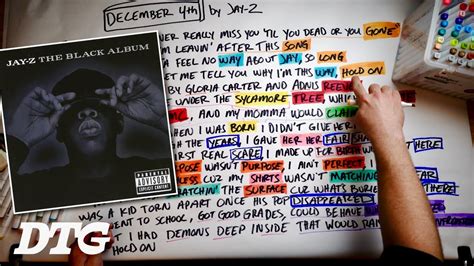 DECEMBER 4TH by JAY-Z
NEVER REALLY MISS YOU TIL YOU DEAD OR YOU GONE
LEAVIN' AFTER THIS SONG
FEEL NO WAY ABOUT JAY, SO LONG
LET ME TELL YOU WHY I'M THIS WAY, HOLD ON
BY GLORIA CARTER AND ADNIS
UNDER THE SYCAMORE TREE,
AND MY MOMMA WOULD CLAIM
WHEN I WAS BORN I DIDN'T GIVE HER
THE YEARS, I GAVE HER HER FAIR SHARE
FIRST REAL SCARE, I MADE UP FOR BIRTH
PURPOSE WASN'T PURPOSE, I AIN'T PERFECT, I
CUZ MY SHIRTS WASN'T MATCHIN
MATCHIN' THE SURFACE CUZ WHAT'S BURIED THERE
WAS A KID TORN APART ONCE HIS POP DISAPPEARED
WENT TO SCHOOL, GOT GOOD GRADES, COULD BEHAVE
I HAD DEMONS DEEP INSIDE THAT WOULD
HOLD ON
JAY-Z THE BLACK ALBUM
PARENTAL
ADVISORY
EXPLICIT CONTENT
DTG